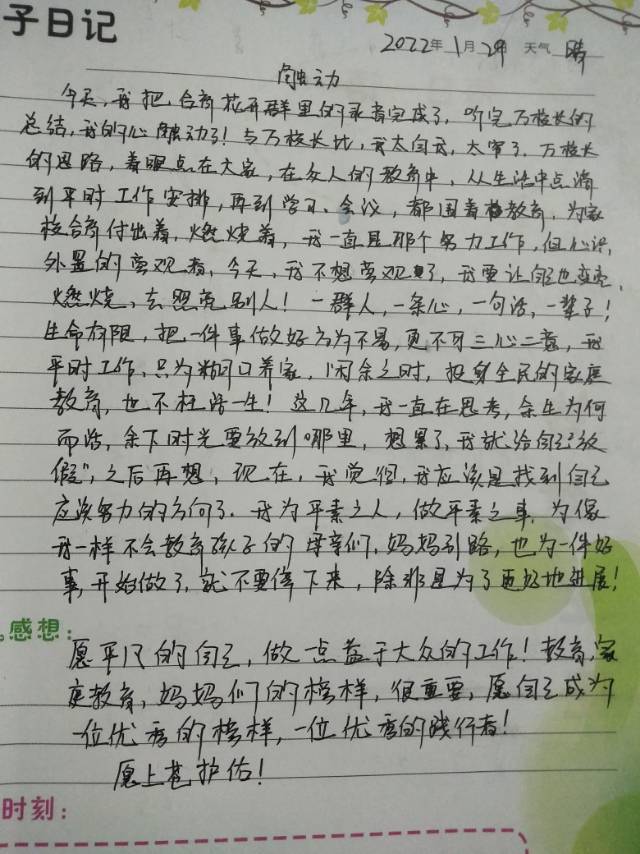 子日记
2022年1月29 天气 晴
触动
今天,我把台商花开群里的录音完成了,听完万校长的
总结,我的心触动了!与万校长比,我太自私,太窄了,万校长
的思路,着眼点在大家,在众人的教育中,从生活中点滴
到平时工作安排,再到学习、会议,都围着教育,为家
校合育付出着,燃烧着,我一直是那个努力工作,但心
外置的旁观者,今天,我不想旁观了,我要让自己也变亮,
燃烧,去照亮别人!一群人,一条心,一句话,一辈子!
生命有限,把一件事做好方为不易,更不可三心二意,我
平时工作,只为糊口养家,闲余之时,投身全民的家庭
教育,也不枉活一生!这几年,我一直在思考,余生为何
而活,余下时光要放到哪里,想累了,我就给自己放
假”,之后再想,现在,我觉得,我应该是找到自己
应该努力的方向了.我为平素之人,做平素之事,为像
我一样不会教育孩子的母亲们,妈妈引路,也为一件好
事,开始做了,就不要停下来,除非是为了更好地进展!
感想:
愿平凡的自己,做一点益于大众的工作!教育,家
庭教育,妈妈们的榜样,很重要,愿自己成为
一位优秀的榜样,一位优秀的践行者!
愿上苍护佑!
时刻: